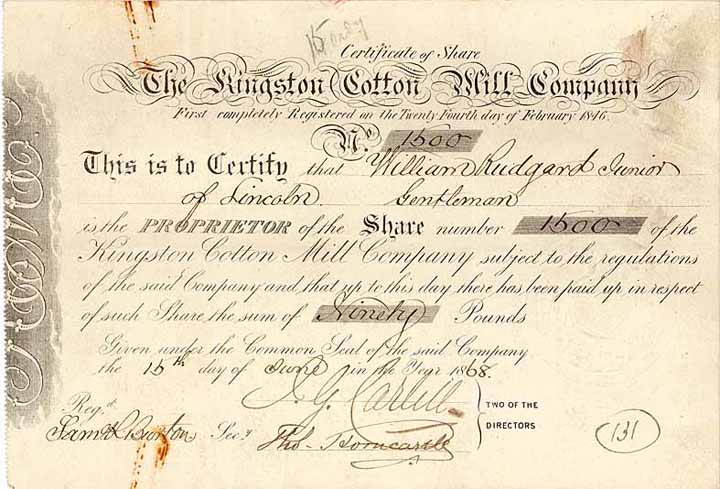 Certificate of Share
The Kingston Cotton Mill Company
First completely Registered on the Twenty Fourth day of February 1846.
No. 1500
This is to Certify that William Rudgard Junior
of Lincoln Gentleman
is the PROPRIETOR of the Share number 1500 of the
Kingston Cotton Mill Company subject to the regulations
of the said Company and that up to this day there has been paid up in respect
of such Share the sum of Ninety Pounds
Given under the Common Seal of the said Company
the 15th day of June in the Year 1868.
TWO OF THE
DIRECTORS
Reg.d
Saml Burton Secy
Tho. Horncastle
131